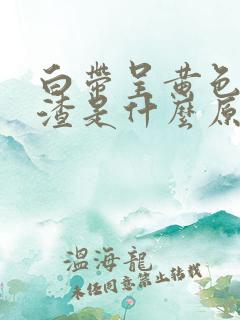 白带呈黄色
渣是什麼原
温海龍
未经同意禁止转载